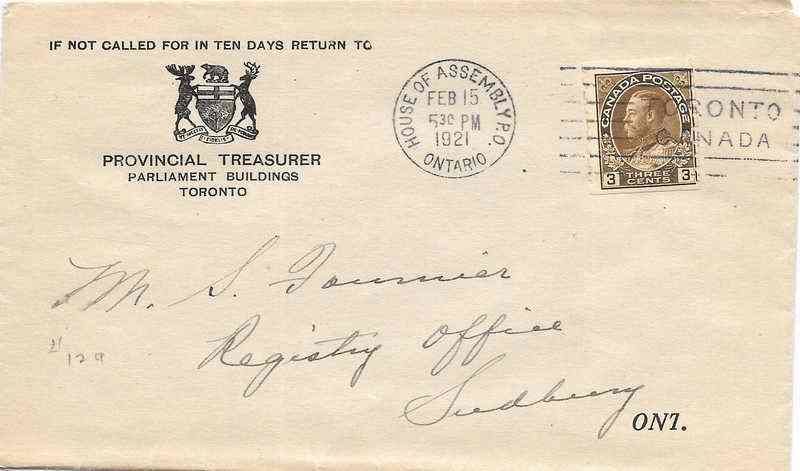 IF NOT CALLED FOR IN TEN DAYS RETURN TO
PROVINCIAL TREASURER
PARLIAMENT BUILDINGS
TORONTO
HOUSE OF ASSEMBLY P.O.
FEB 15
530 PM
1921
ONTARIO
CANADA POSTAGE
3 THREE CENTS 3
TORONTO
CANADA
M. S. Fournier
Registry Office
Sudbury
ONT.
21
129